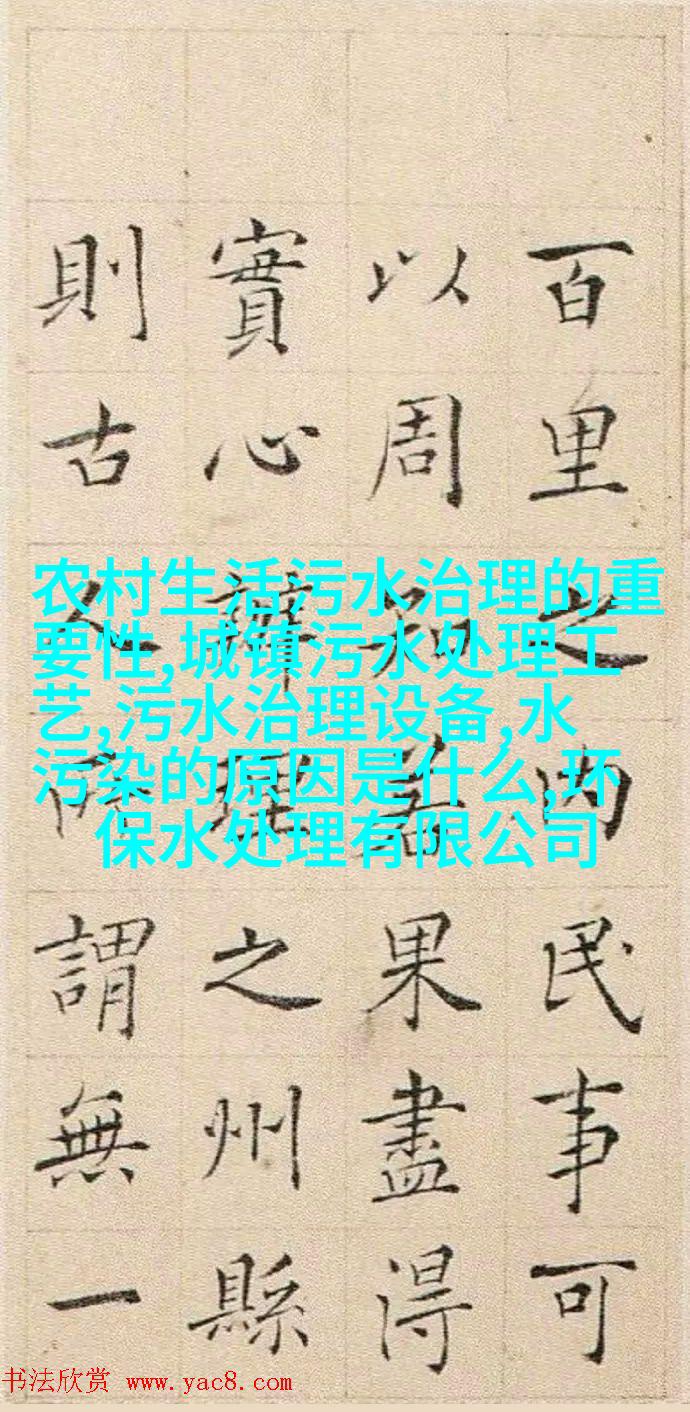 百里之内民事可
以周知若果盡得
實心辦理之州縣
則古人所謂無一
农村生活污水治理的重
要性,城镇污水处理工
艺,污水治理设备,水
污染的原因是什么,环
保水处理有限公司
书法欣赏 www.yac8.com